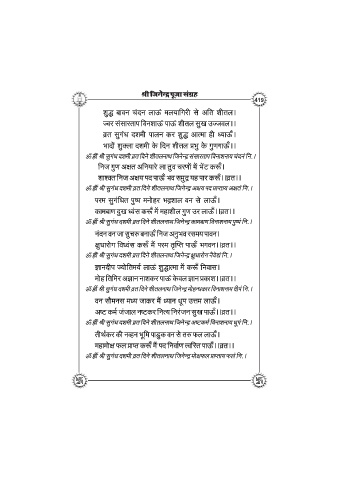 श्री जिनेन्द्र पूजा संग्रह
419
शुद्ध बावन चंदन लाऊं मलयागिरी से अति शीतल।
ज्वर संसारताप विनशाऊं पाऊं शीतल सुख उज्जवल।।
व्रत सुगंध दशमी पालन कर शुद्ध आत्मा ही ध्याऊँ।
भादों शुक्ला दशमी के दिन शीतल प्रभु के गुणगाऊँ।।
ॐ ह्रीं श्री सुगंध दशमी व्रत दिने शीतलनाथ जिनेन्द्र संसारताप विनाशनाय चंदनं नि.।
निज गुण अक्षत अनियारे ला तुव चरणों में भेंट करूँ।
शाश्वत निज अक्षय पद पाऊँ भव समुद्र यह पार करूँ।।व्रत।।
ॐ ह्रीं श्री सुगंध दशमी व्रत दिने शीतलनाथ जिनेन्द्र अक्षय पद प्राप्ताय अक्षतं नि.।
परम सुगंधित पुष्प मनोहर भद्रशाल वन से लाऊँ।
कामबाण दुख ध्वंस करूँ मैं महाशील गुण उर लाऊँ।।व्रत।।
ॐ ह्रीं श्री सुगंध दशमी व्रत दिने शीतलनाथ जिनेन्द्र कामबाण विनाशनाय पुष्पं नि.।
नंदन वन जा सुचरु बनाऊँ निज अनुभव रसमय पावन।
क्षुधारोग विध्वंस करूँ मैं परम तृप्ति पाऊँ भगवन।।व्रत।।
ॐ ह्रीं श्री सुगंध दशमी व्रत दिने शीतलनाथ जिनेन्द्र क्षुधारोग नैवेद्यं नि.।
ज्ञानदीप ज्योतिमयं लाऊं शुद्धात्मा में करूँ निवास।
मोह तिमिर अज्ञान नाशकर पाऊं केवल ज्ञान प्रकाश।।व्रत।।
ॐ ह्रीं श्री सुगंध दशमी व्रत दिने शीतलनाथ जिनेन्द्र मोहान्धकार विनाशनाय दीपं नि.।
वन सौमनस मध्य जाकर मैं ध्यान धूप उत्तम लाऊँ।
अष्ट कर्म जंजाल नष्टकर नित्य निरंजन सुख पाऊँ।।व्रत।।
ॐ ह्रीं श्री सुगंध दशमी व्रत दिने शीतलनाथ जिनेन्द्र अष्टकर्म विनाशनाय धूपं नि.।
तीर्थंकर की नव्हन भूमि पांडुक वन से तरु फल लाऊँ।
महामोक्ष फल प्राप्त करूँ मैं पद निर्वाण त्वरित पाऊँ।।व्रत।।
ॐ ह्रीं श्री सुगंध दशमी व्रत दिने शीतलनाथ जिनेन्द्र मोक्षफल प्राप्ताय फलं नि.।